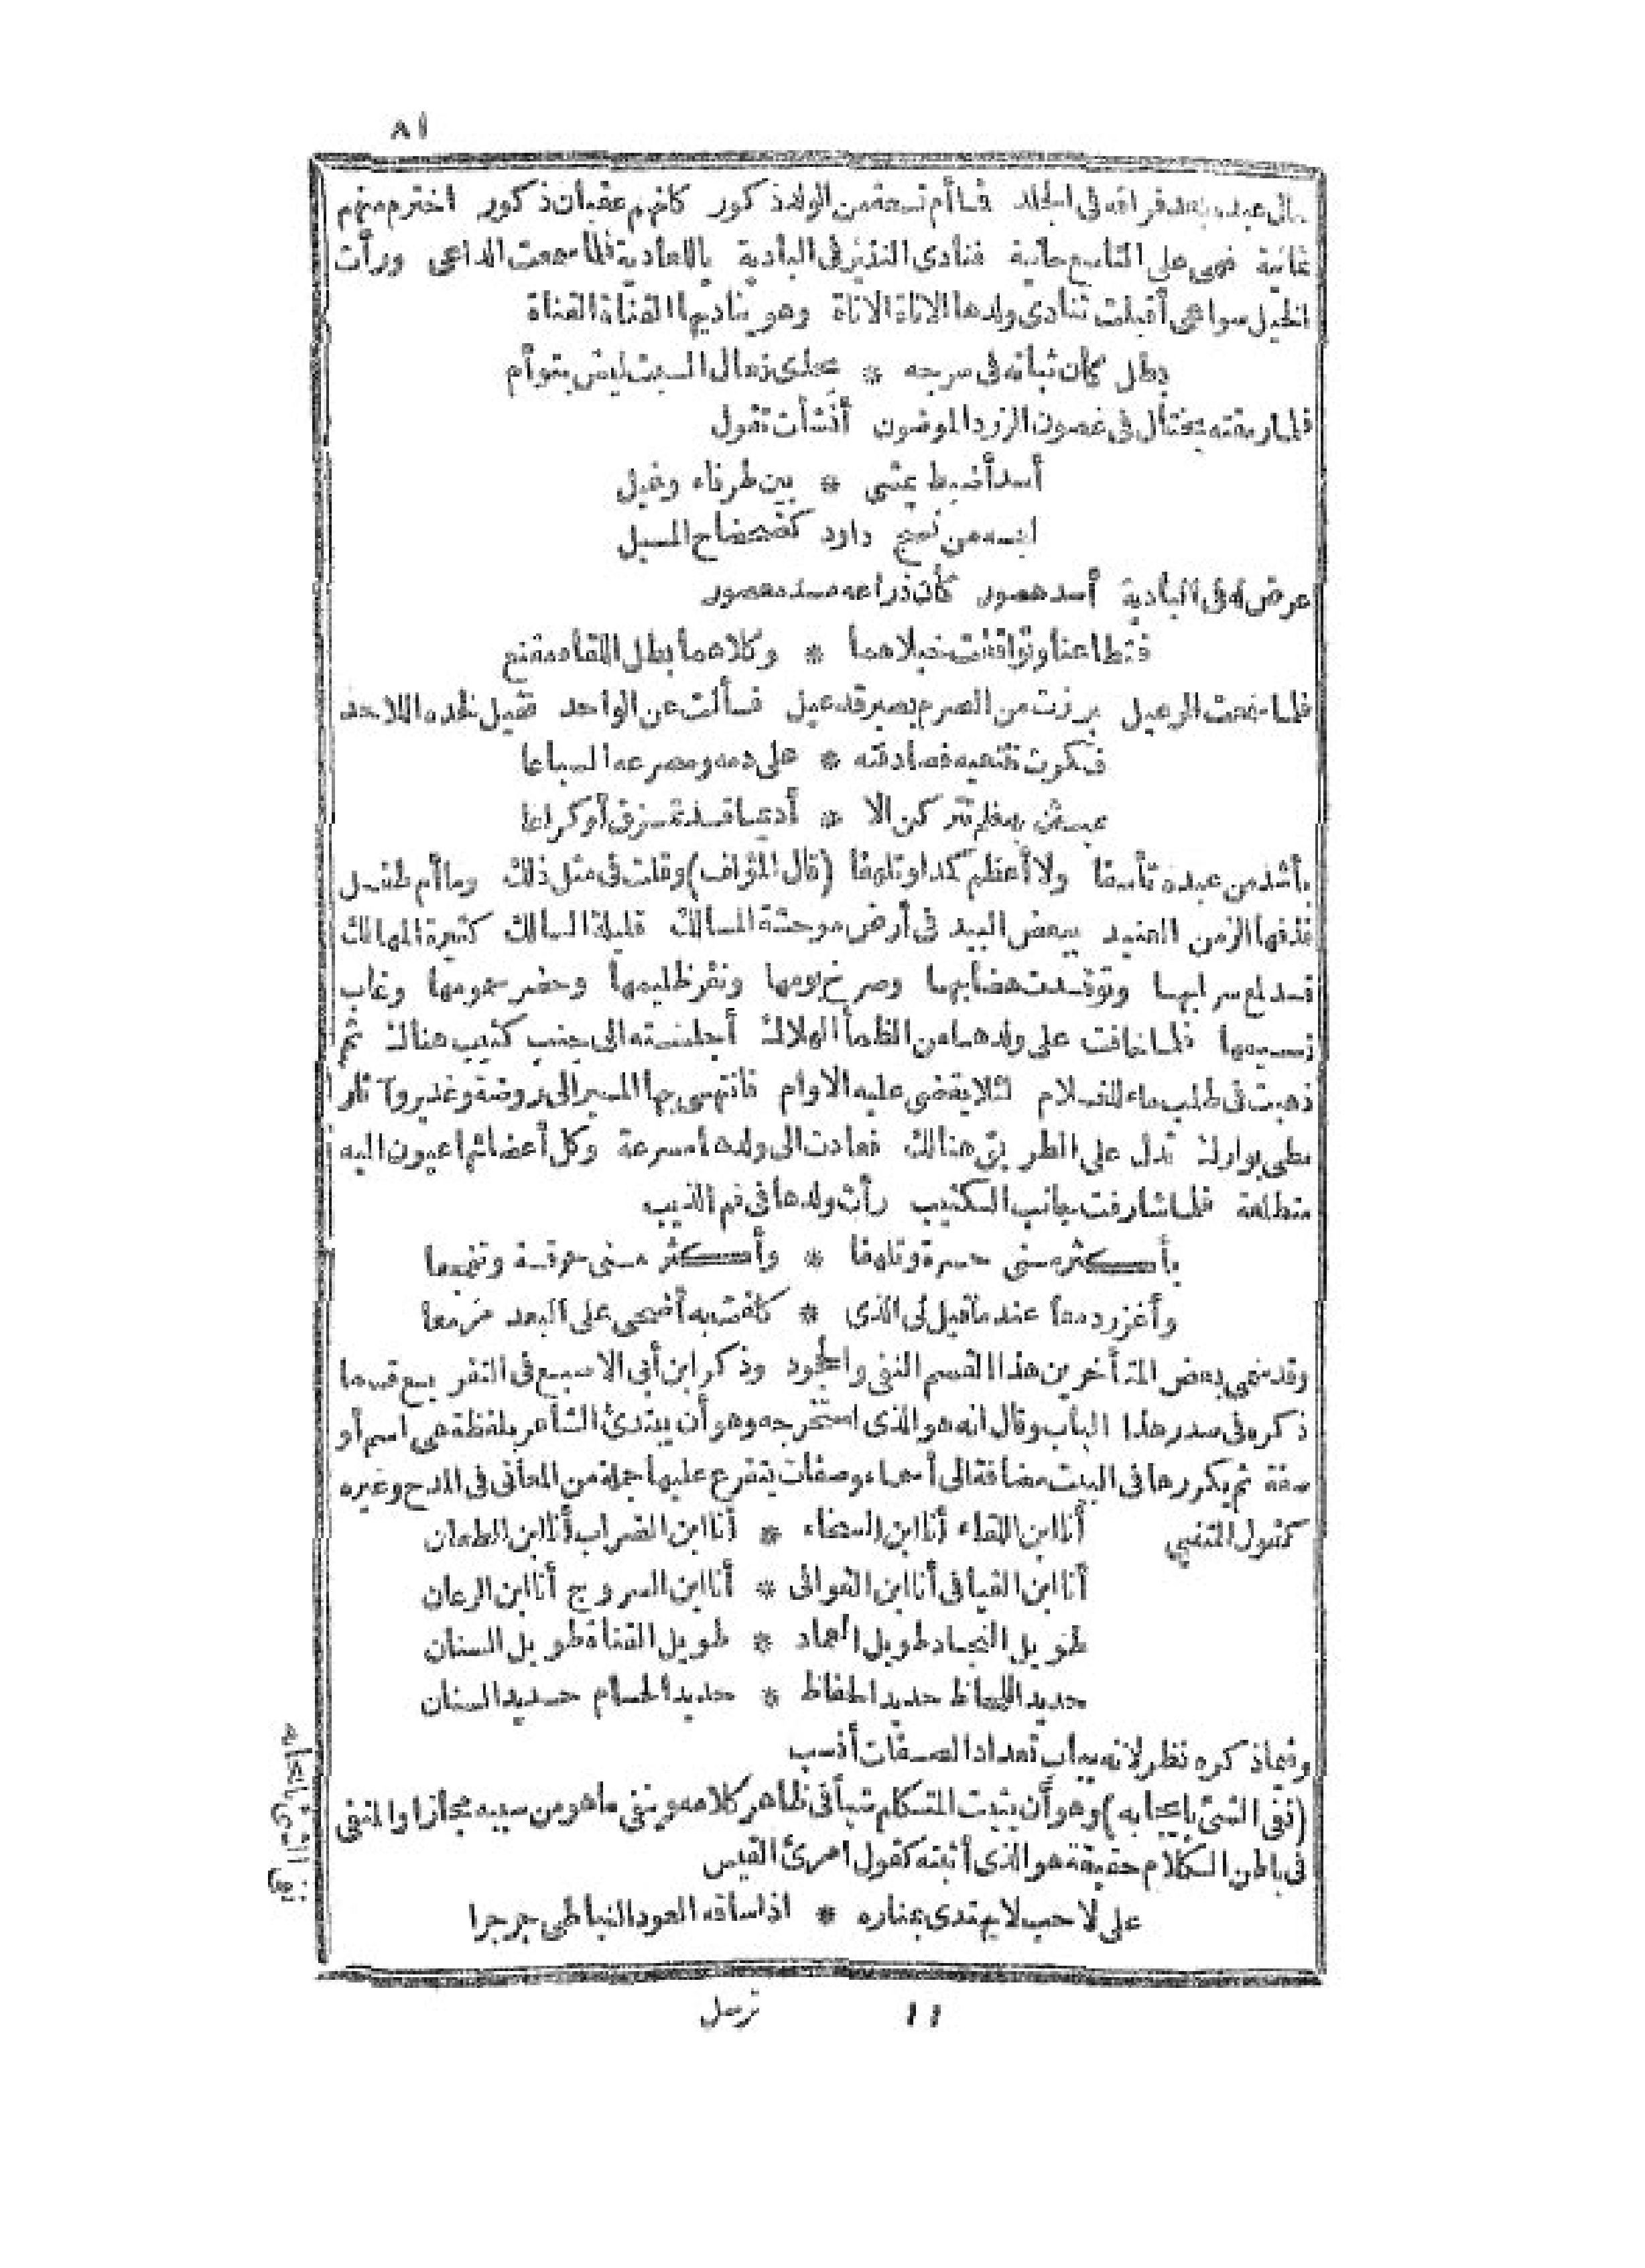 ٨١
حال عبده بعد فراقه في الجلد فما أم تسعة من الولد ذكور كأنهم عقبان ذكور اخترم منهم
ثمانية فهي على التاسع حانية فنادى النذير في البادية ياللعادية فلما سمعت الداعي ورأت
الخيل سواهي أقبلت تنادي ولدها الاناة الاناة وهو يناديها القناة القناة
بطل كأن ثيابه في سرحه * يحذى نعال السبت ليس بتوأم
فلما رمقته يختال في غصون الزرد الموضون أنشأت تقول
أسد أضبط يمشي * بين طرفاء وغيل
لبسه من نسج داود كضحضاح المسيل
عرض له في البادية أسد هصور كأن ذراعه مسد معصور
فتطاعنا وتواقفت خيلاهما * وكلاهما بطل اللقاء مقنع
فلما سمعت الرعيل برزت من الصرم بصبر قد عيل فسألت عن الواحد فقيل لحده اللاحد
فكرت تبتغيه فصادفته * على دمه ومصرعه السباعا
عبثن به فلم يتركن الا * أديما قد تمزق أو كراعا
بأشد من عبده تأسفا ولا أعظم كمدا وتلهفا (قال المؤلف) وقلت في مثل ذلك وما أم طفل
قذفها الزمن العنيد ببعض البيد في أرض موحشة المسالك قليلة السالك كثيرة المهالك
قد لمع سرابها وتوقدت هضابها وصرخ بومها ونفر ظليمها وحضر سمومها وغاب
نسيمها فلما خافت على ولدها من الظمأ الهلاك أجلسته الى جنب كثيب هناك ثم
ذهبت في طلب ماء للغلام لئلا يقضي عليه الاوام فانتهى بها المسير الى روضة وغدير وآثار
مطي بوارك تدل على الطريق هنالك فعادت الى ولدها مسرعة وكل أعضائها عيون اليه
متطلعة فلما شارفت جانب الكثيب رأت ولدها في فم الذيب
بأكثر مني حسرة وتلهفا * وأكثر مني حرقة وتفجعا
وأغزر دمعا عند ما قيل لي الذي * كلفت به أضحى على البعد مزمعا
وقد سمى بعض المتأخرين هذا القسم النفي والجحود وذكر ابن أبي الاصبع في التفريع قسما
ذكره في صدر هذا الباب وقال انه هو الذي استخرجه وهو أن يبتدئ الشاعر بلفظة هي اسم أو
صفة ثم يكررها في البيت مضافة الى أسماء وصفات يتفرع عليها جملة من المعاني في المدح وغيره
كقول المتنبي أنا ابن اللقاء أنا ابن السخاء * أنا ابن الضراب أنا ابن الطعان
أنا ابن الفيافي أنا ابن القوافي * أنا ابن السروج أنا ابن الرعان
طويل النجاد طويل العماد * طويل القناة طويل السنان
حديد اللحاظ حديد الحفاظ * حديد الحسام حديد السنان
وفيما ذكره نظر لانه بباب تعداد الصفات أنسب
(نفي الشئ بايجابه) وهو أن يثبت المتكلم شيأ في ظاهر كلامه وينفي ما هو من سببه مجازا والمنفي
في باطن الكلام حقيقة هو الذي أثبته كقول امرئ القيس
على لاحب لا يهتدى بمناره * اذا سافه العود النباطي جرجرا
نفي الشئ بايجابه
١١ ترسل